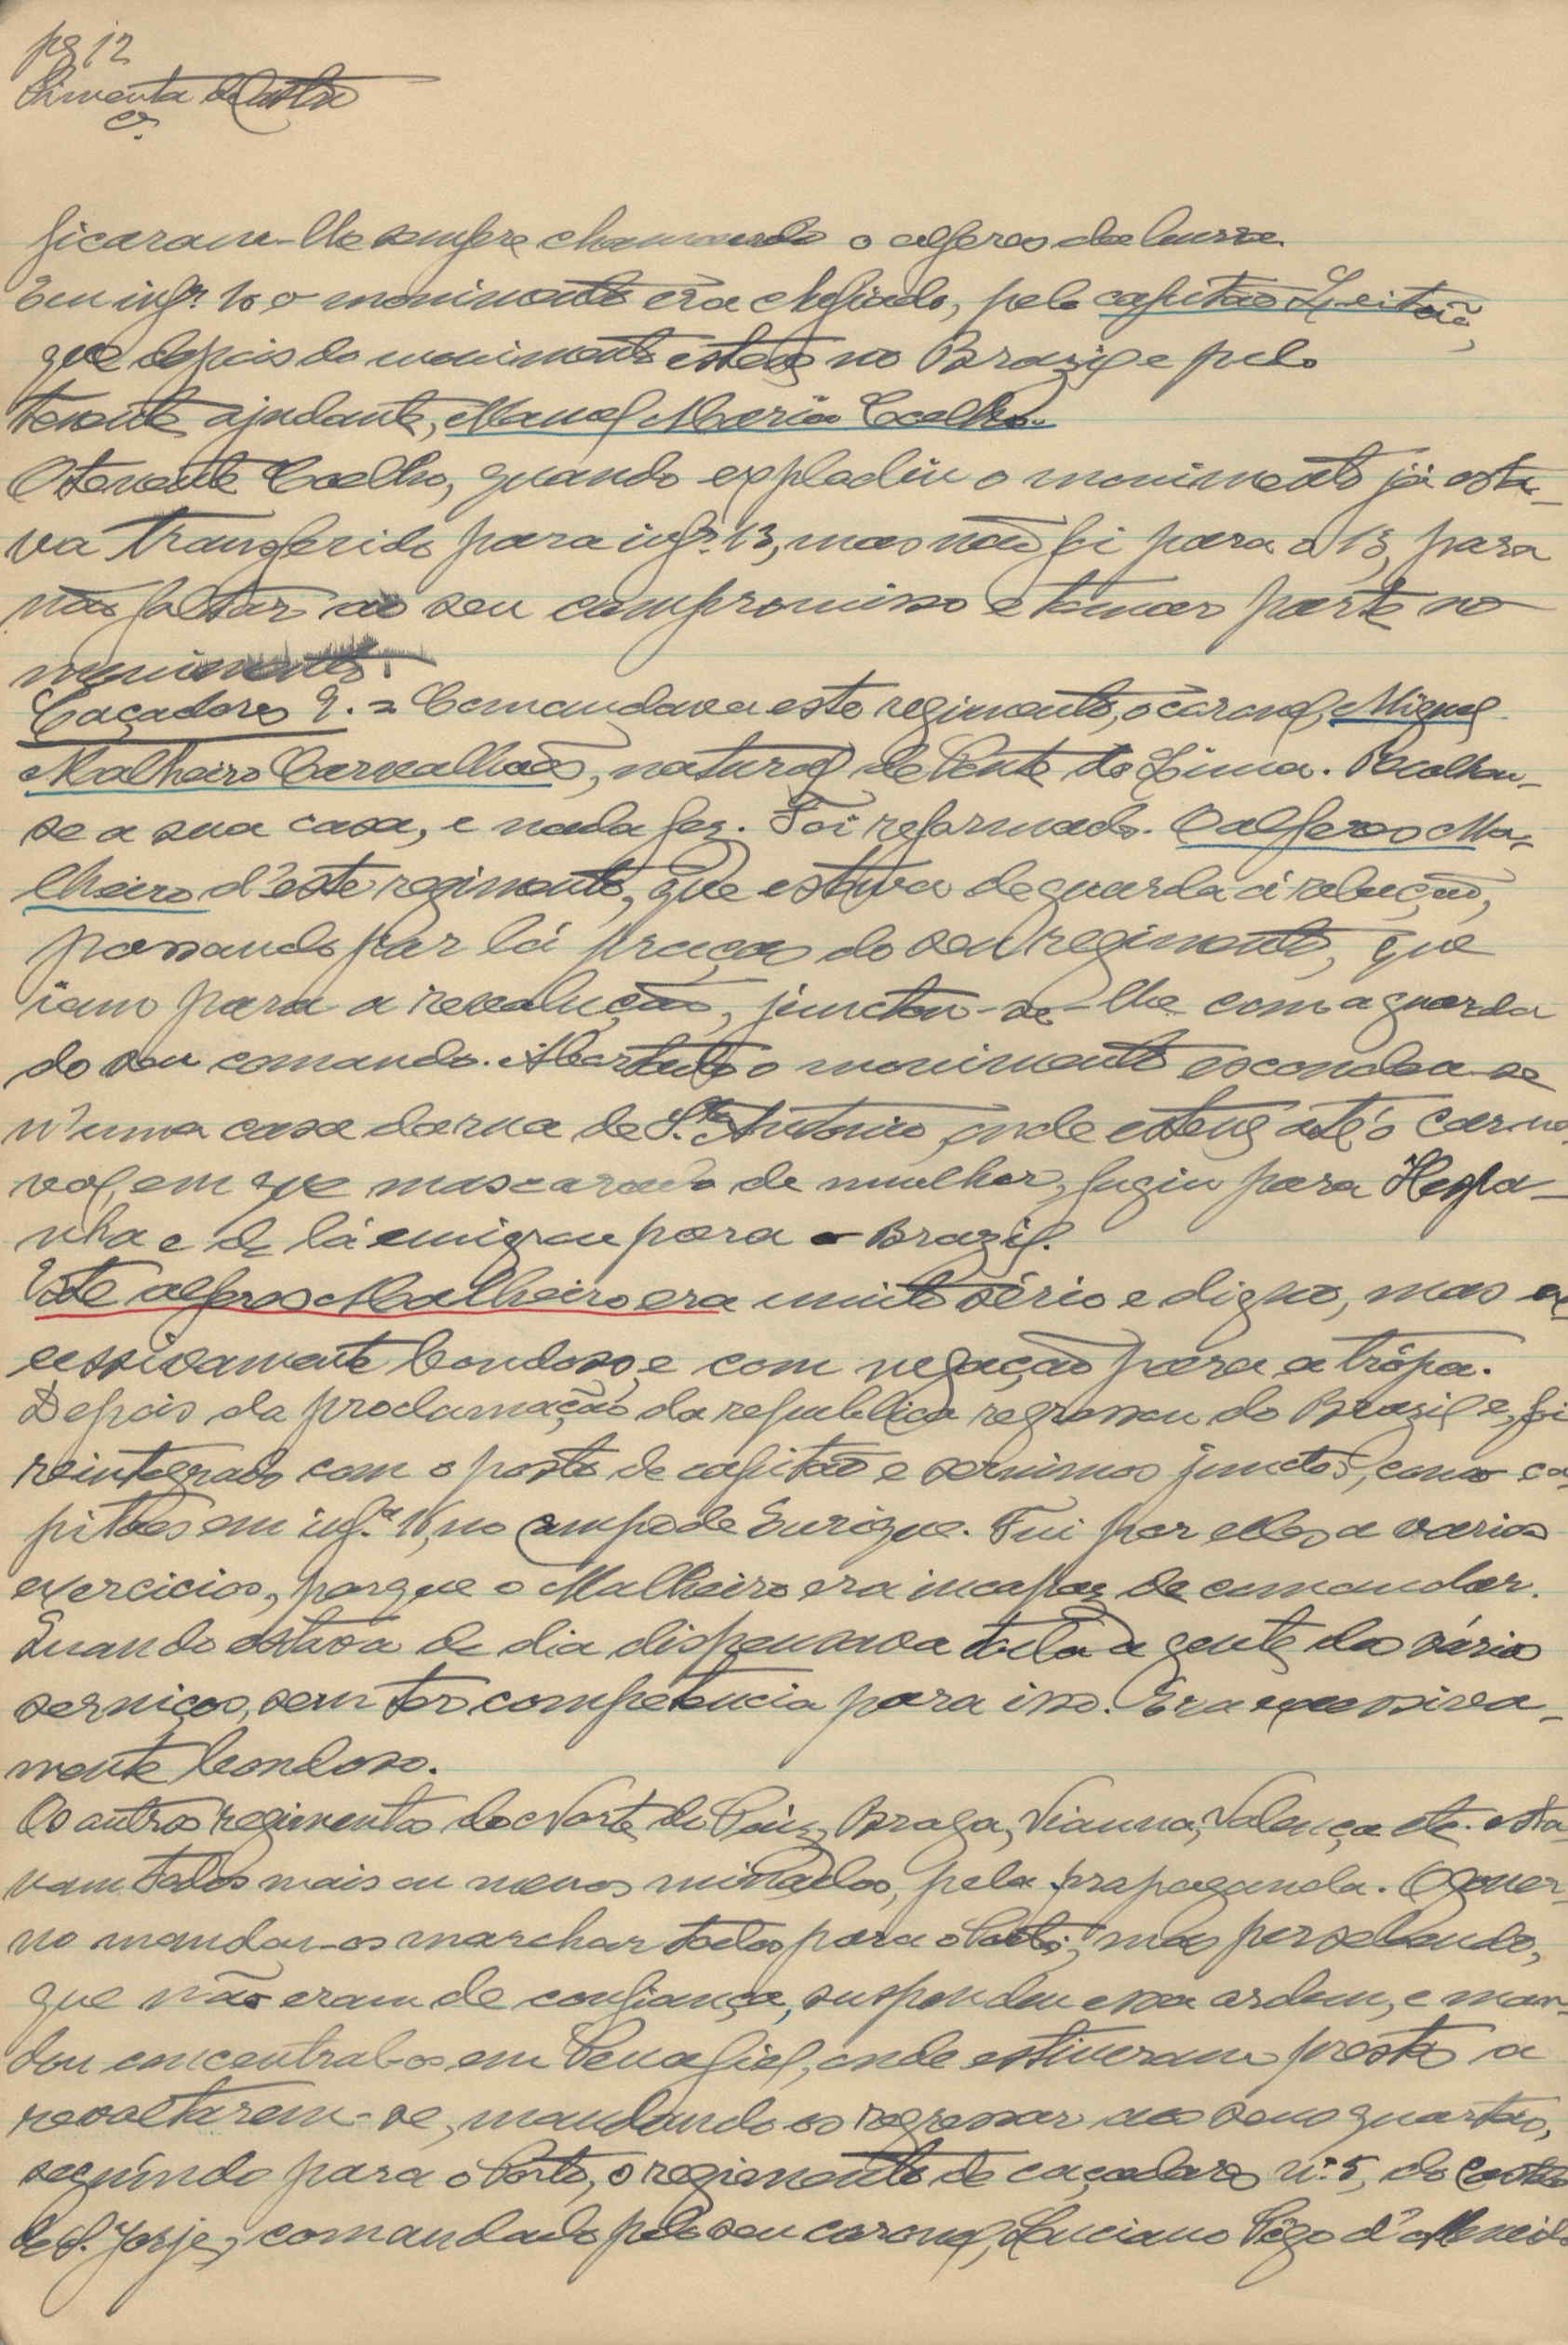 pg 12
Pimenta de Castro
ficaram-lhe sempre chamando o alferes da burra.
Em infª 10 o movimento era chefiado, pelo capitão Leitão,
que depois do movimento esteve no Brazil e pelo
tenente ajudante, Manuel Maria Coelho.
O tenente Coelho, quando explodiu o movimento já esta-
va transferido para infª 13, mas não foi para o 13, para
não faltar ao seu compromisso e tomar parte no
movimento.
Caçadores 9. = Comandava este regimento, o coronel, Miguel
Malheiro Carvalhaes, natural de Ponte do Lima. Recolheu-
se a sua casa, e nada fez. Foi reformado. O alferes Ma-
lheiro d'este regimento, que estava de guarda á relação,
passando por lá praças do seu regimento, que
iam para a revolução, junctou-se-lhe com a guarda
do seu comando. Abortado o movimento escondeu-se
n'uma casa da rua de Sto Antonio, onde esteve até ó carna-
val, em que mascarado de mulher, fugiu para Hespa-
nha e de lá emigrou para o Brazil.
Este alferes Malheiro era muito sério e digno, mas ex-
cessivamente bondoso, e com negação para a trópa.
Depois da proclamação da republica regressou do Brazil e, foi
reintegrado com o posto de capitão e servimos junctos, como ca-
pitães em infª 16, no Campo de Ourique. Fui por elles a varios
exercicios, porque o Malheiro era incapaz de comandar.
Quando estava de dia dispensava toda a gente dos vários
serviços, sem ter competencia para isso. Era excessiva-
mente bondoso.
Os outros regimentos do Norte do Paiz, Braga, Vianna, Valença etc. esta
vam todos mais ou menos minados, pela propaganda. O gover-
no mandou-os marchar todos para o Porto; mas persebendo,
que não eram de confiança, suspendeu essa ordem, e man-
dou concentral-os em Penafiel, onde estiveram prestes a
revoltarem-se, mandando os regressar aos seus quarteis,
seguindo para o Porto, o regimento de caçadores nº 5, do Castelo
de S. Jorje, comandado pelo seu coronel, Luciano Pêgo d'Almeida